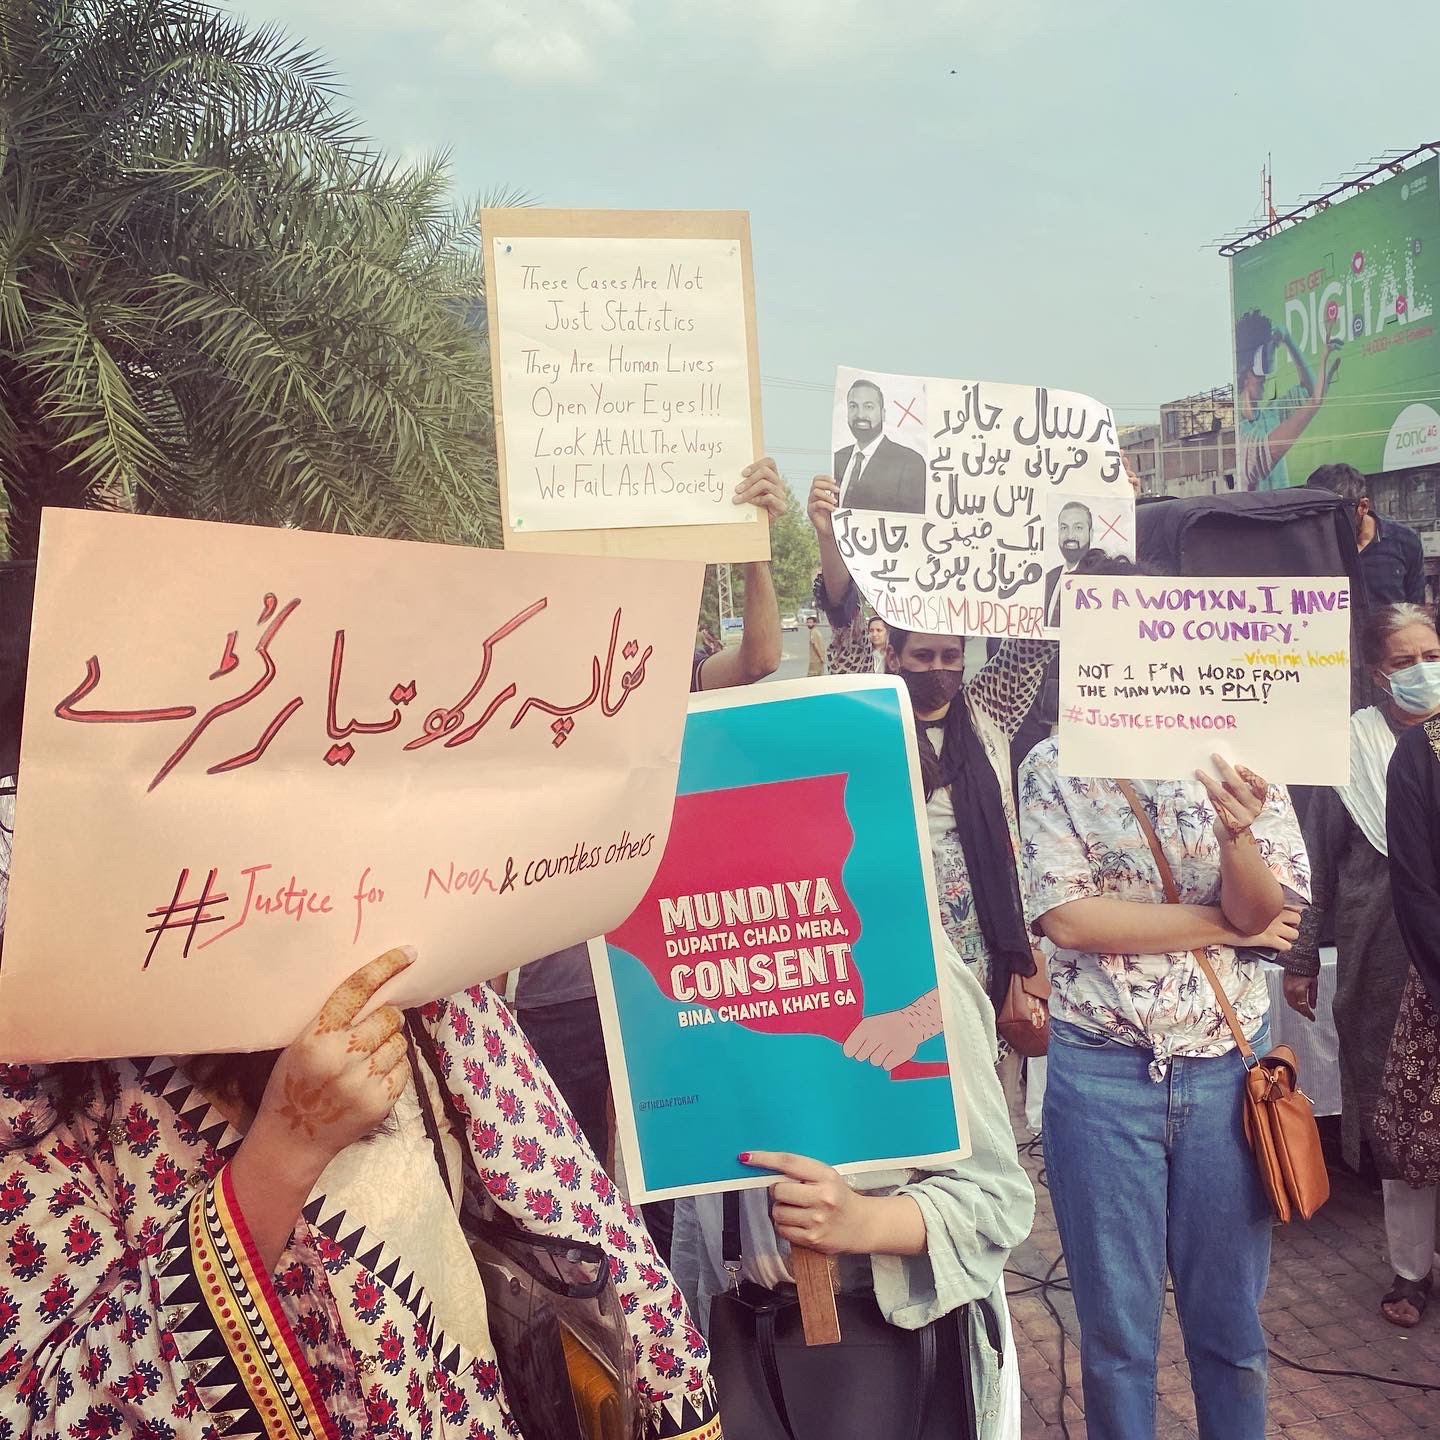 These Cases Are Not
Just Statistics
They Are Human Lives
Open Your Eyes!!!
Look At ALL The Ways
We Fail As A Society
ہر سال جانور
کی قربانی ہوتی ہے
اس سال
ایک قیمتی جان کی
قربانی ہوئی ہے
ZAHIRISAMURDERER
'AS A WOMXN, I HAVE
NO COUNTRY.'
-Virginia Woolf.
NOT 1 F*N WORD FROM
THE MAN WHO IS PM!
#JUSTICEFORNOOR
#Justice for Noor & countless others
MUNDIYA
DUPATTA CHAD MERA,
CONSENT
BINA CHANTA KHAYE GA
@THEDAFTDRAFT
LET'S GET
DIGITAL
ZONG 4G